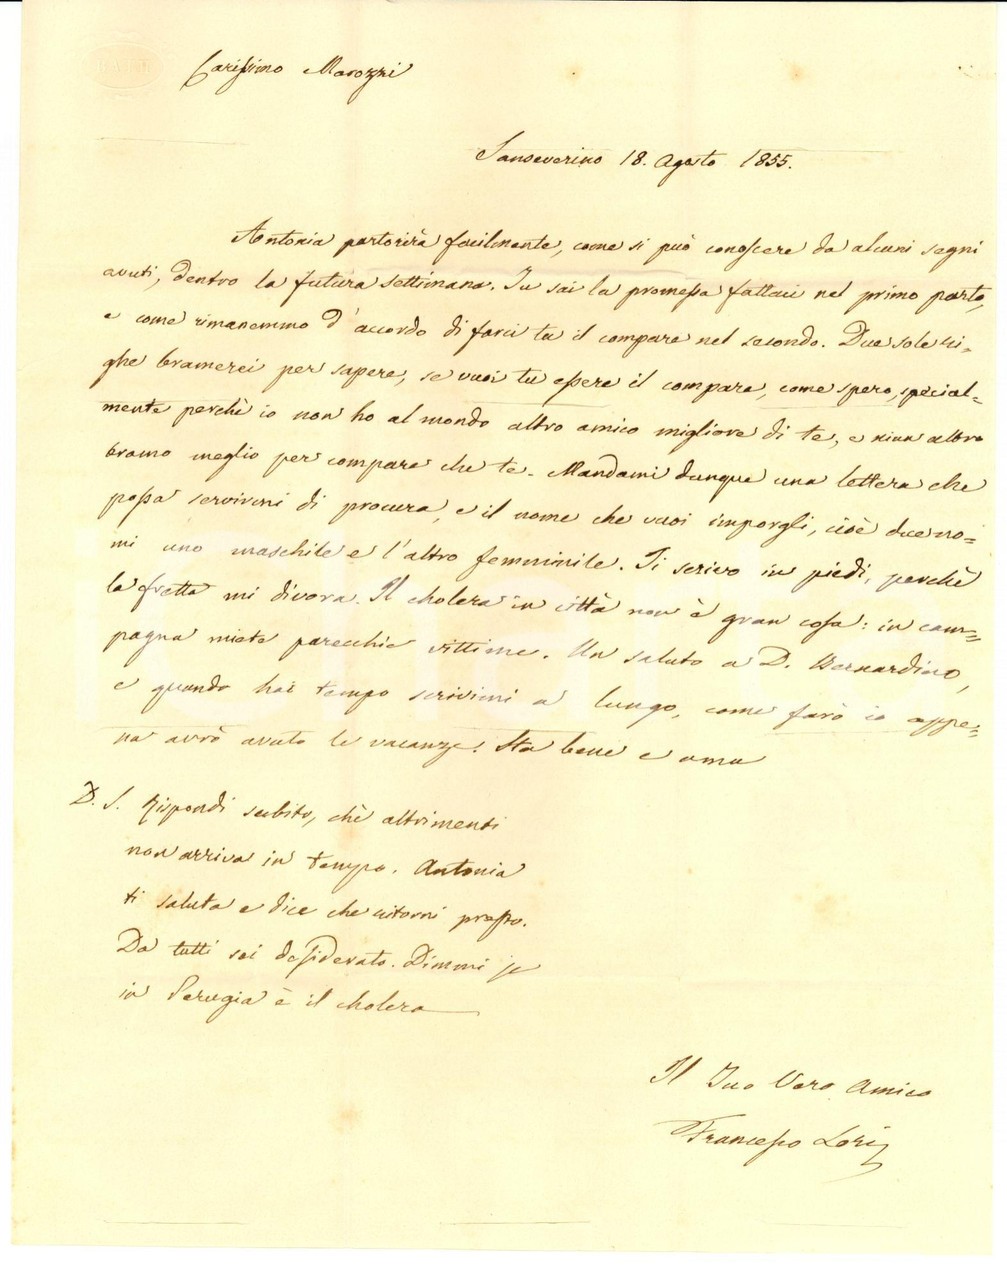 BATH
Carissimo Marozzi
Sanseverino 18. Agosto 1855.
Antonia partorirà facilmente, come si può conoscere da alcuni segni
avuti, dentro la futura settimana. Tu sai la promessa fattaci nel primo parto,
e come rimanemmo d'accordo di farci tu il compare nel secondo. Due sole ri=
ghe bramerei per sapere, se vuoi tu essere il compare, come spero, special=
mente perchè io non ho al mondo altro amico migliore di te, e niun altro
bramo meglio per compare che te. Mandami dunque una lettera che
possa servirmi di procura, e il nome che vuoi imporgli, cioè due no=
mi uno maschile e l'altro femminile. Ti scrivo in piedi, perchè
la fretta mi divora. Il cholera in città non è gran cosa: in cam=
pagna miete parecchie vittime. Un saluto a D. Bernardino,
e quando hai tempo scrivimi a lungo, come farò io appe=
na avrò avuto le vacanze. Sta bene e ama
P. S. Rispondi subito, chè altrimenti
non arriva in tempo. Antonia
ti saluta e dice che ritorni presto.
Da tutti sei desiderato. Dimmi se
in Perugia è il cholera
Il Tuo Vero Amico
Francesco